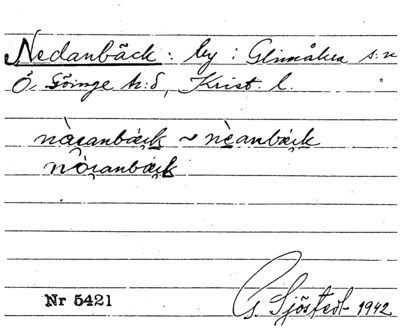 Nedanbäck: by i Glimåkra s:n
Ö. Göinge h:d, Krist. l.
nàeanbæk ~ nèanbæk
nòeanbæk
Nr 5421
G. Sjöstedt 1942